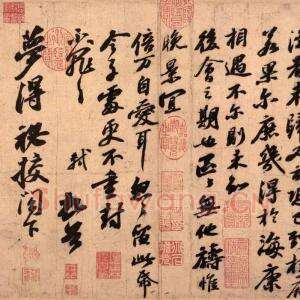 若果爾庶幾得於海康
相遇不爾則未知
後會之期也區區無他禱惟
晚景宜
倍万自愛耳匆匆留此帋
令子處更不重封
不罪々
軾頓首
夢得秘校閣下